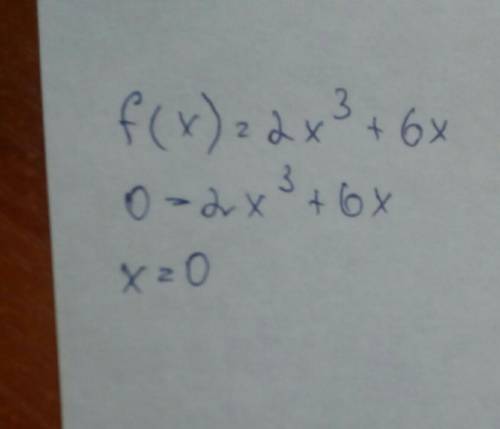 f(x) = 2x³ + 6x
0 - 2x³ + 6x
x = 0